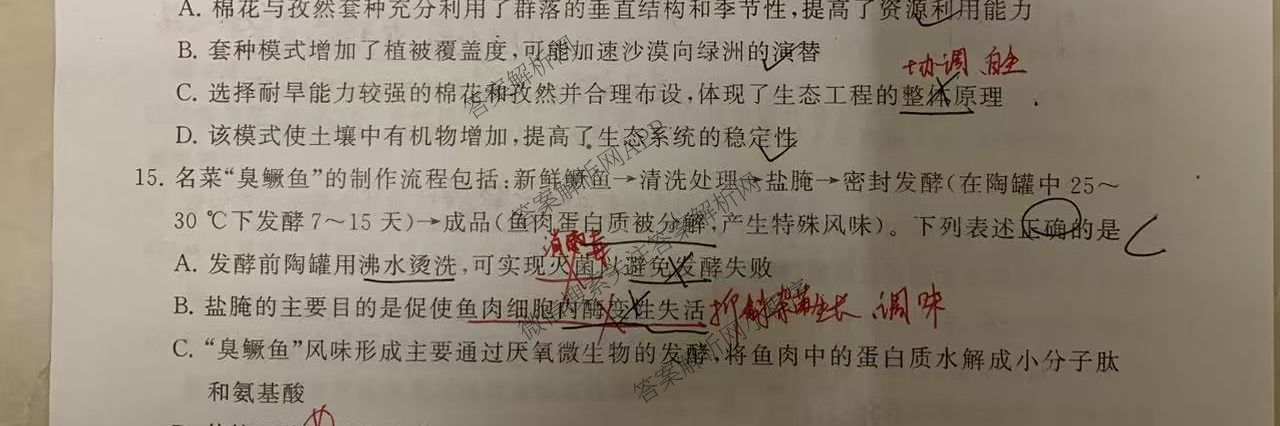 A. 棉花与孜然套种充分利用了群落的垂直结构和季节性,提高了资源利用能力
B. 套种模式增加了植被覆盖度,可能加速沙漠向绿洲的演替
协调 自生
C. 选择耐旱能力较强的棉花和孜然并合理布设,体现了生态工程的整体原理
D. 该模式使土壤中有机物增加,提高了生态系统的稳定性
15. 名菜“臭鳜鱼”的制作流程包括:新鲜鳜鱼→清洗处理→盐腌→密封发酵(在陶罐中 25~
30 ℃下发酵 7~15 天)→成品(鱼肉蛋白质被分解,产生特殊风味)。下列表述正确的是
C
消毒
A. 发酵前陶罐用沸水烫洗,可实现灭菌以避免发酵失败
B. 盐腌的主要目的是促使鱼肉细胞内酶变性失活 抑制杂菌生长 调味
C. “臭鳜鱼”风味形成主要通过厌氧微生物的发酵,将鱼肉中的蛋白质水解成小分子肽
和氨基酸
答案解析网
答案解析网APP
答案解析网
答案解析网